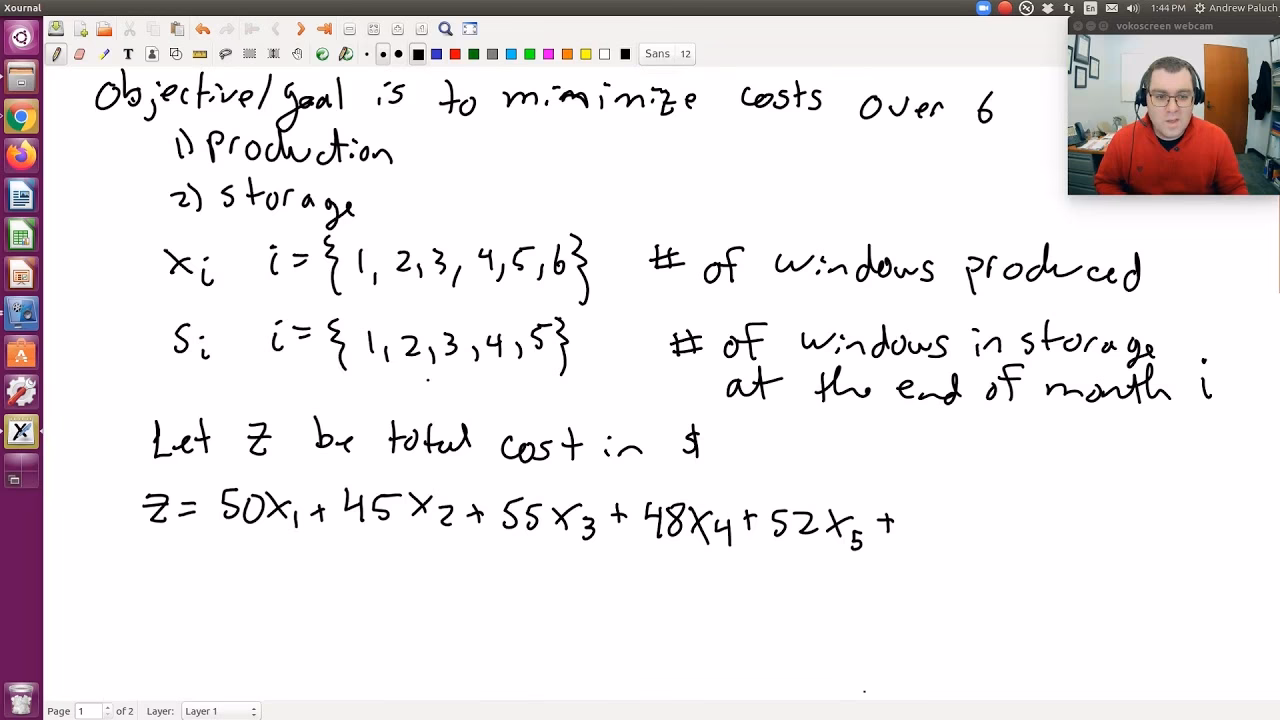 Xournal
En
1:44 PM
Andrew Paluch
vokoscreen webcam
Sans 12
Objective/goal is to minimize costs over 6
1) production
2) storage
xi i = {1, 2, 3, 4, 5, 6} # of windows produced
Si i = {1, 2, 3, 4, 5} # of windows in storage
at the end of month i
Let Z be total cost in $
Z = 50X1 + 45X2 + 55X3 + 48X4 + 52X5 +
Page 1 of 2 Layer: Layer 1